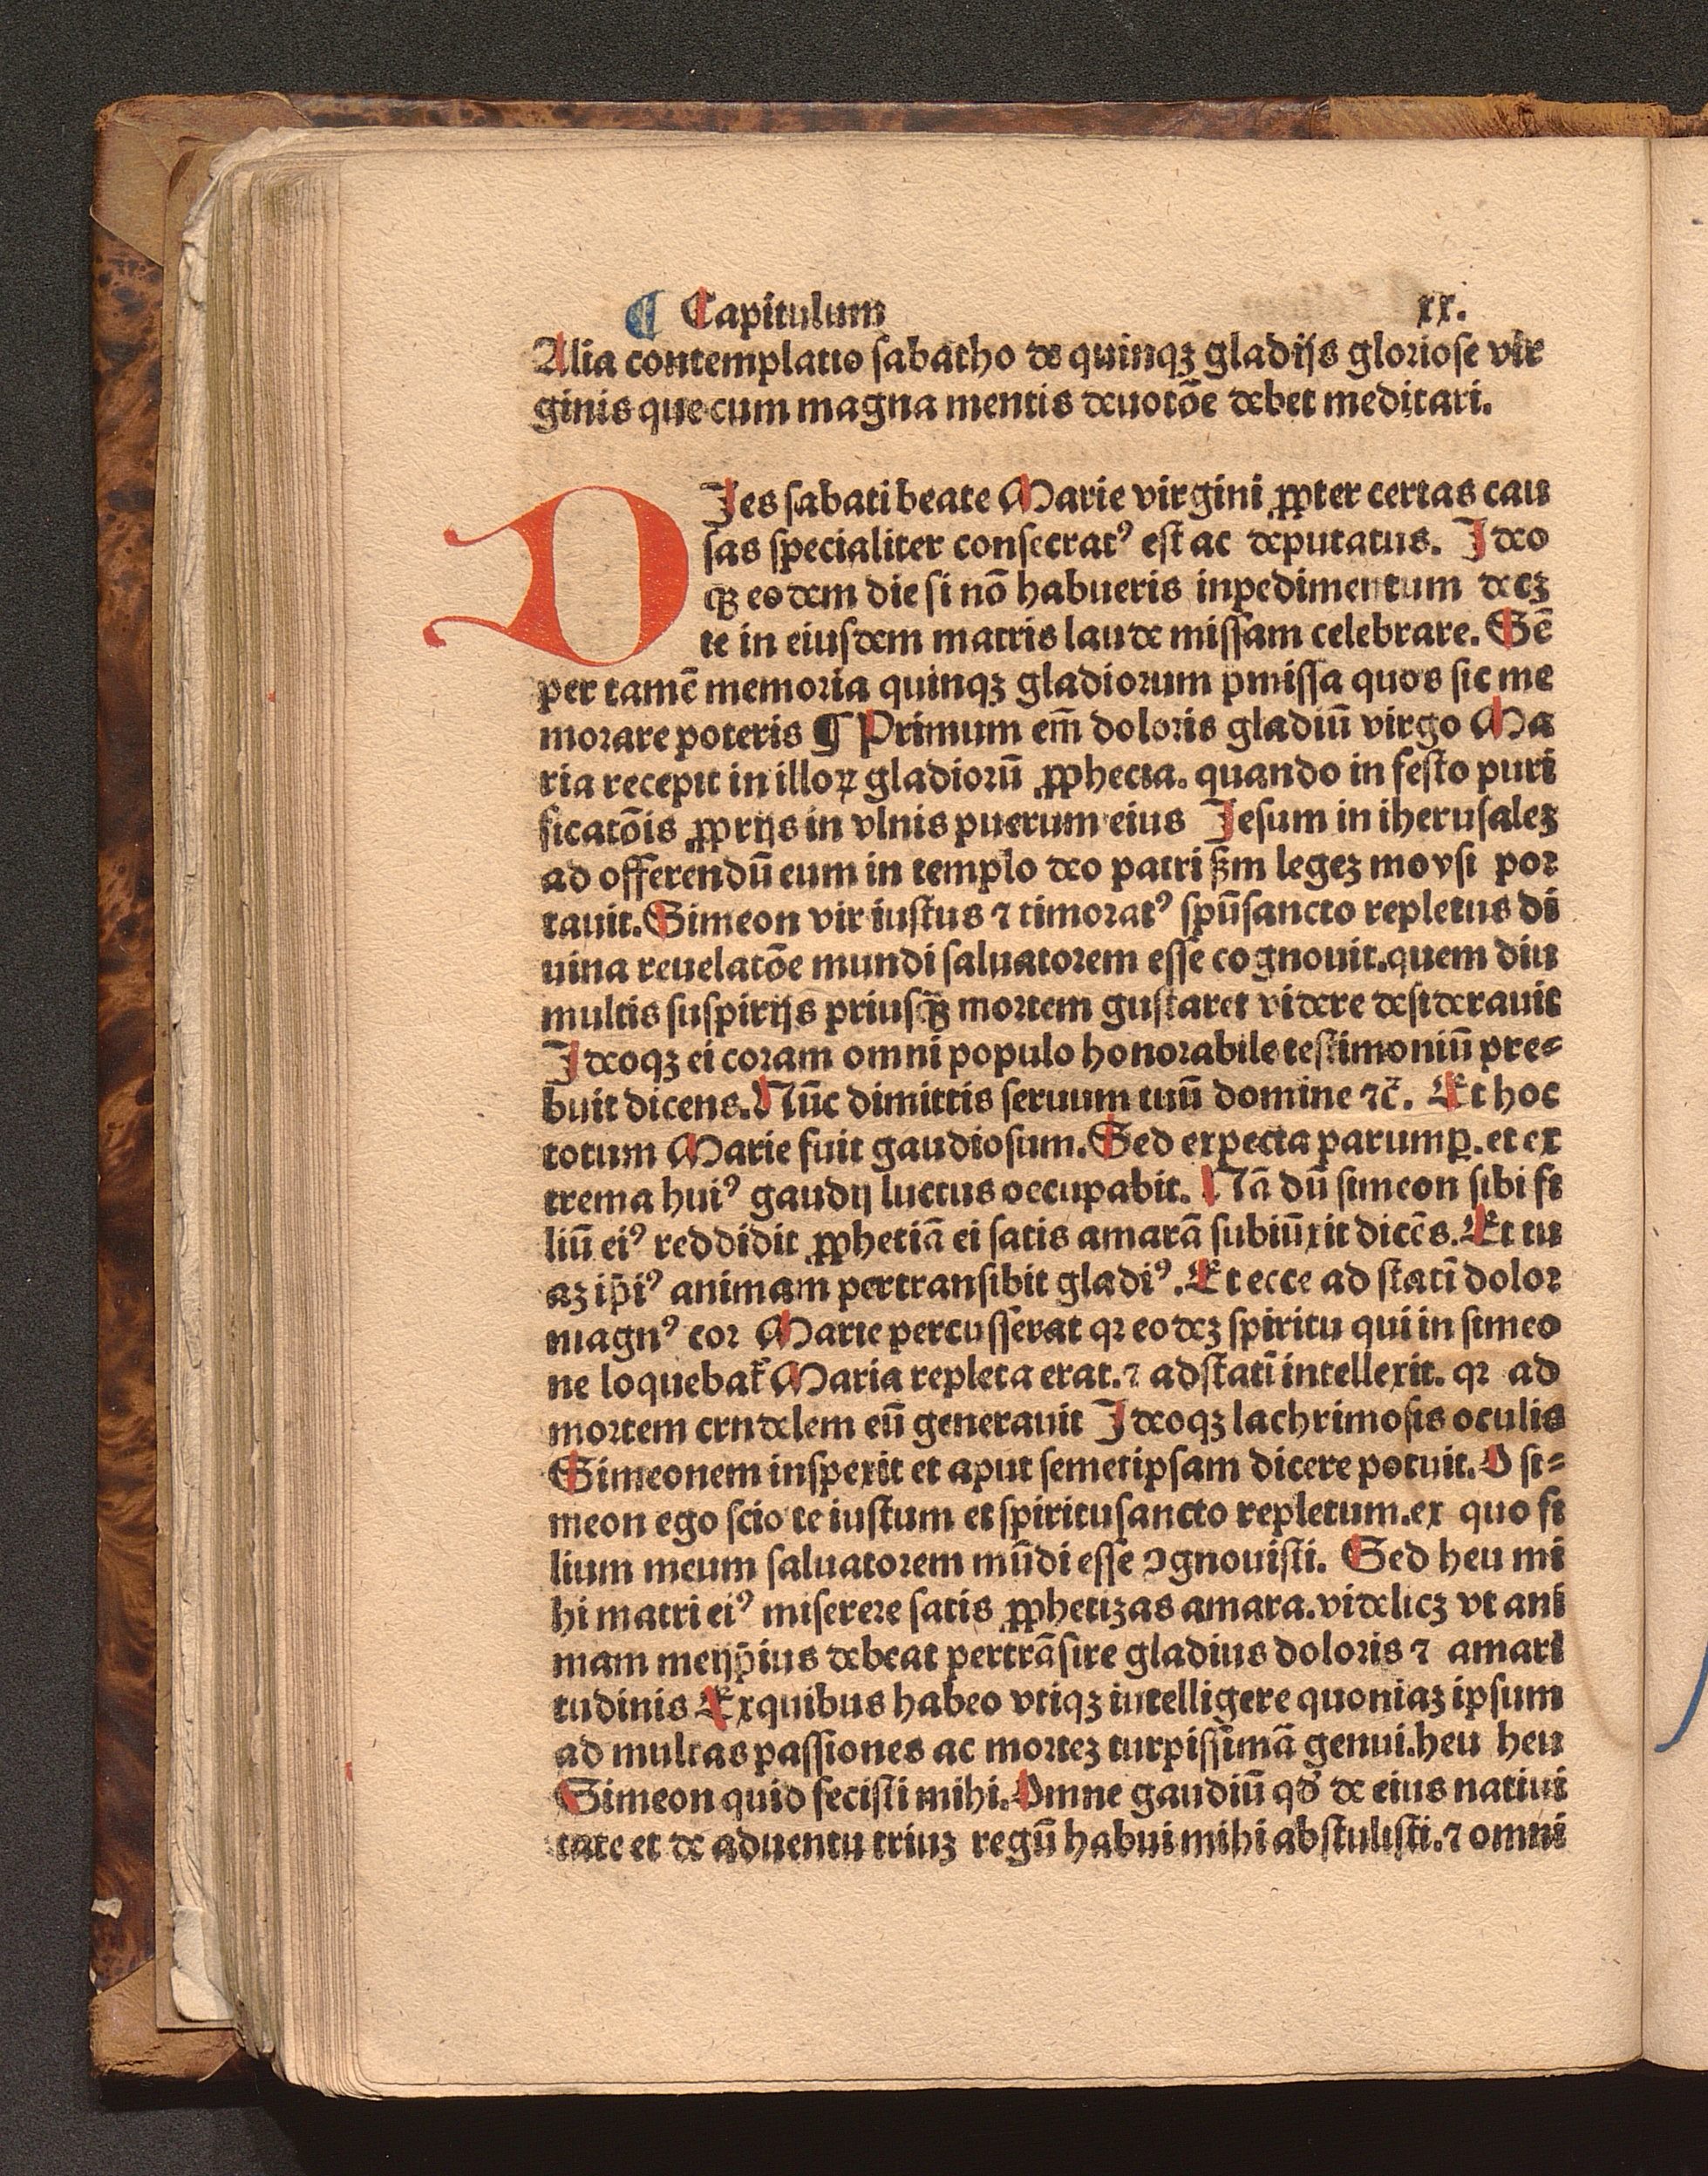 ¶ Capitulum xx.
Alia contemplatio ſabatho de quinqꝫ gladijs glorioſe vir
ginis que cum magna mentis deuotōe debet meditari.
DIes ſabati beate Marie virgini ꝓpter certas cau
ſas ſpecialiter conſecratꝰ eſt ac deputatus. Ideo
qꝫ eodem die ſi nō habueris inpedimentum decꝫ
te in eiuſdem matris laude miſſam celebrare. Sē
per tamē memoria quinqꝫ gladiorum p̄miſſa quos ſic me
morare poteris ¶ Primum em̄ doloris gladiū virgo Ma
ria recepit in illoꝝ gladiorū ꝓphecia. quando in feſto puri
ficatōis ꝓprijs in vlnis puerum eius Jeſum in iheruſaleꝫ
ad offerendū eum in templo deo patri ẜm legeꝫ moyſi por
tauit. Simeon vir iuſtus ⁊ timoratꝰ ſpūſancto repletus di
uina reuelatōe mundi ſaluatorem eſſe cognouit. quem diu
multis ſuſpirijs priuſqꝫ̄ mortem guſtaret videre deſiderauit
Ideoqꝫ ei coram omni populo honorabile teſtimoniū pre⸗
buit dicens. Nūc dimittis ſeruum tuū domine ⁊c̄. Et hoc
totum Marie fuit gaudioſum. Sed expecta parumꝑ. et ex
trema huiꝰ gaudij luctus occupabit. Nā dū ſimeon ſibi fi
liū eiꝰ reddidit ꝓphetiā ei ſatis amarā ſubiūxit dicēs. Et tu
aꝫ ip̄iꝰ animam pertranſibit gladiꝰ. Et ecce ad ſtatī dolor
magnꝰ cor Marie percuſſerat qꝛ eodeꝫ ſpiritu qui in ſimeo
ne loquebat᷑ Maria repleta erat. ⁊ adſtatī intellexit. qꝛ ad
mortem crndelem eū generauit Ideoqꝫ lachrimoſis oculis
Simeonem inſpexit et aput ſemetipſam dicere potuit. O ſi⸗
meon ego ſcio te iuſtum et ſpirituſancto repletum. ex quo fi
lium meum ſaluatorem mūdi eſſe ꝯgnouiſti. Sed heu mi
hi matri eiꝰ miſerere ſatis ꝓphetizas amara. videlicꝫ vt ani
mam meijp̄ius debeat pertrāſire gladius doloris ⁊ amari
tudinis Exquibus habeo vtiqꝫ intelligere quoniaꝫ ipſum
ad multas paſſiones ac morteꝫ turpiſſimā genui. heu heu
Simeon quid feciſti mihi. Omne gaudiū qd̓ de eius natiui
tate et de aduentu triuꝫ regū habui mihi abſtuliſti. ⁊ omni